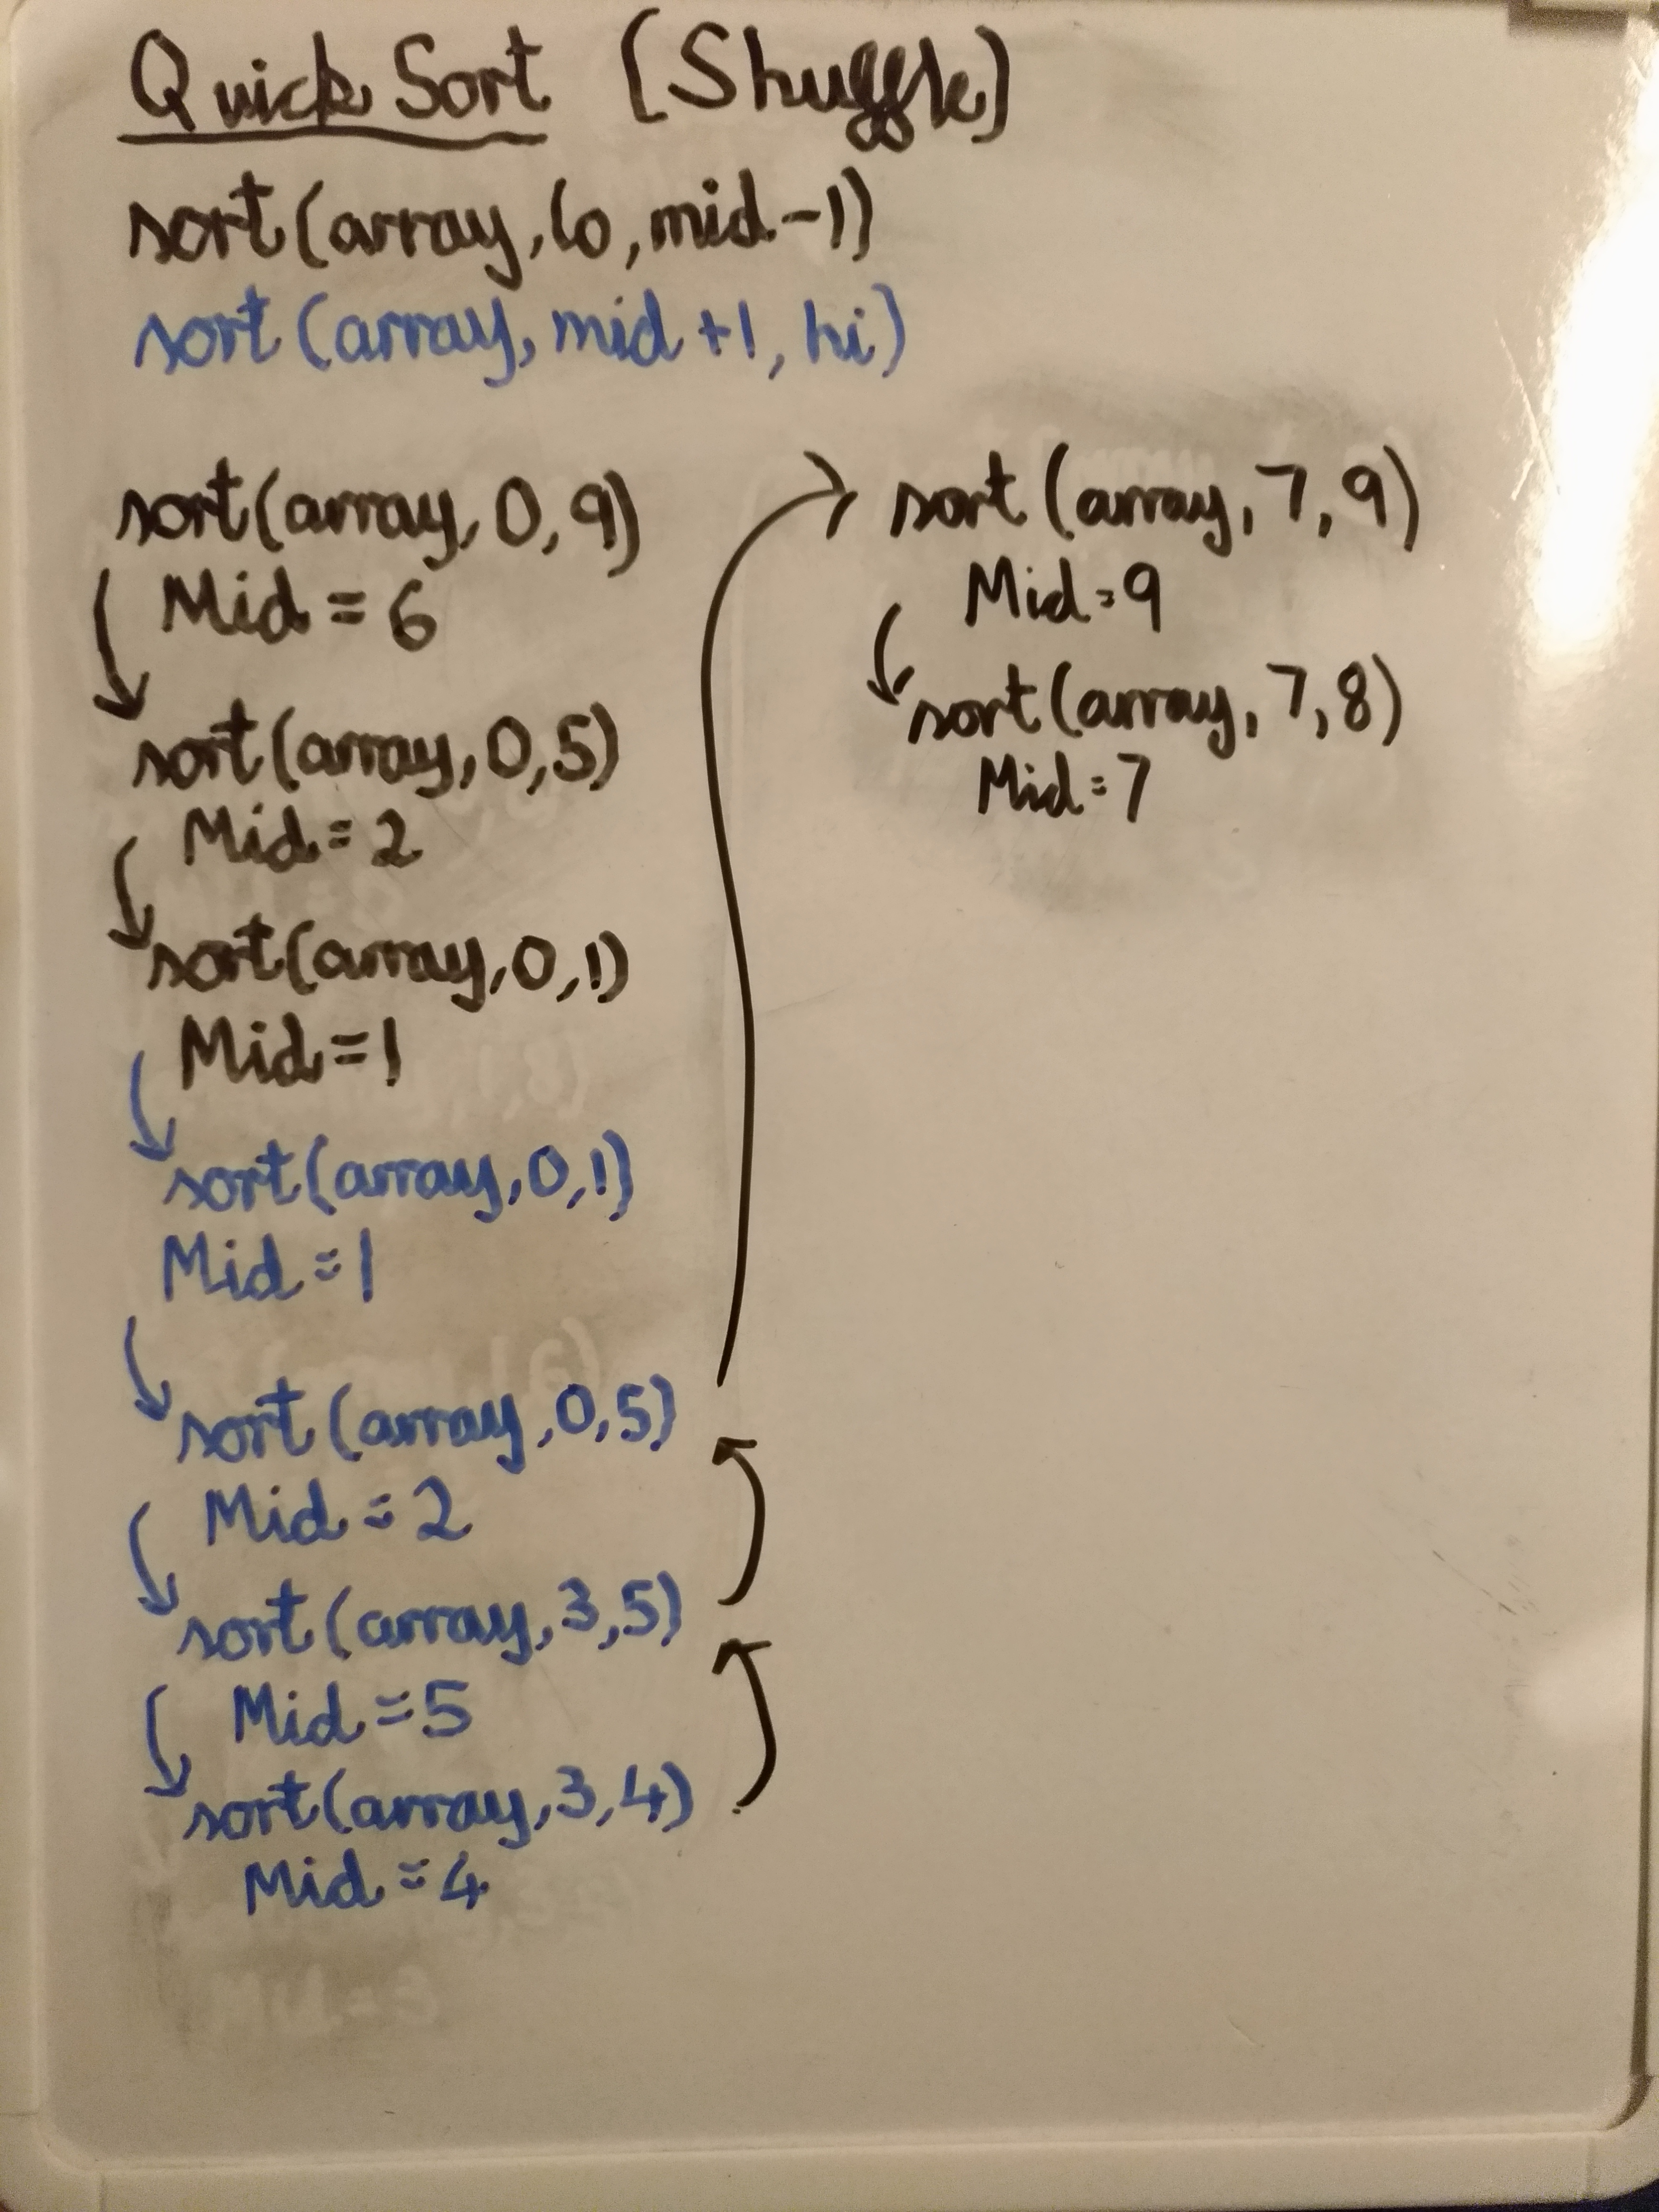 Quick Sort [Shuffle]
sort(array, lo, mid-1)
sort(array, mid+1, hi)
sort(array, 0, 9)
Mid = 6
sort(array, 0, 5)
Mid = 2
sort(array, 0, 1)
Mid = 1
sort(array, 0, 1)
Mid = 1
sort(array, 0, 5)
Mid = 2
sort(array, 3, 5)
Mid = 5
sort(array, 3, 4)
Mid = 4
sort(array, 7, 9)
Mid = 9
sort(array, 7, 8)
Mid = 7